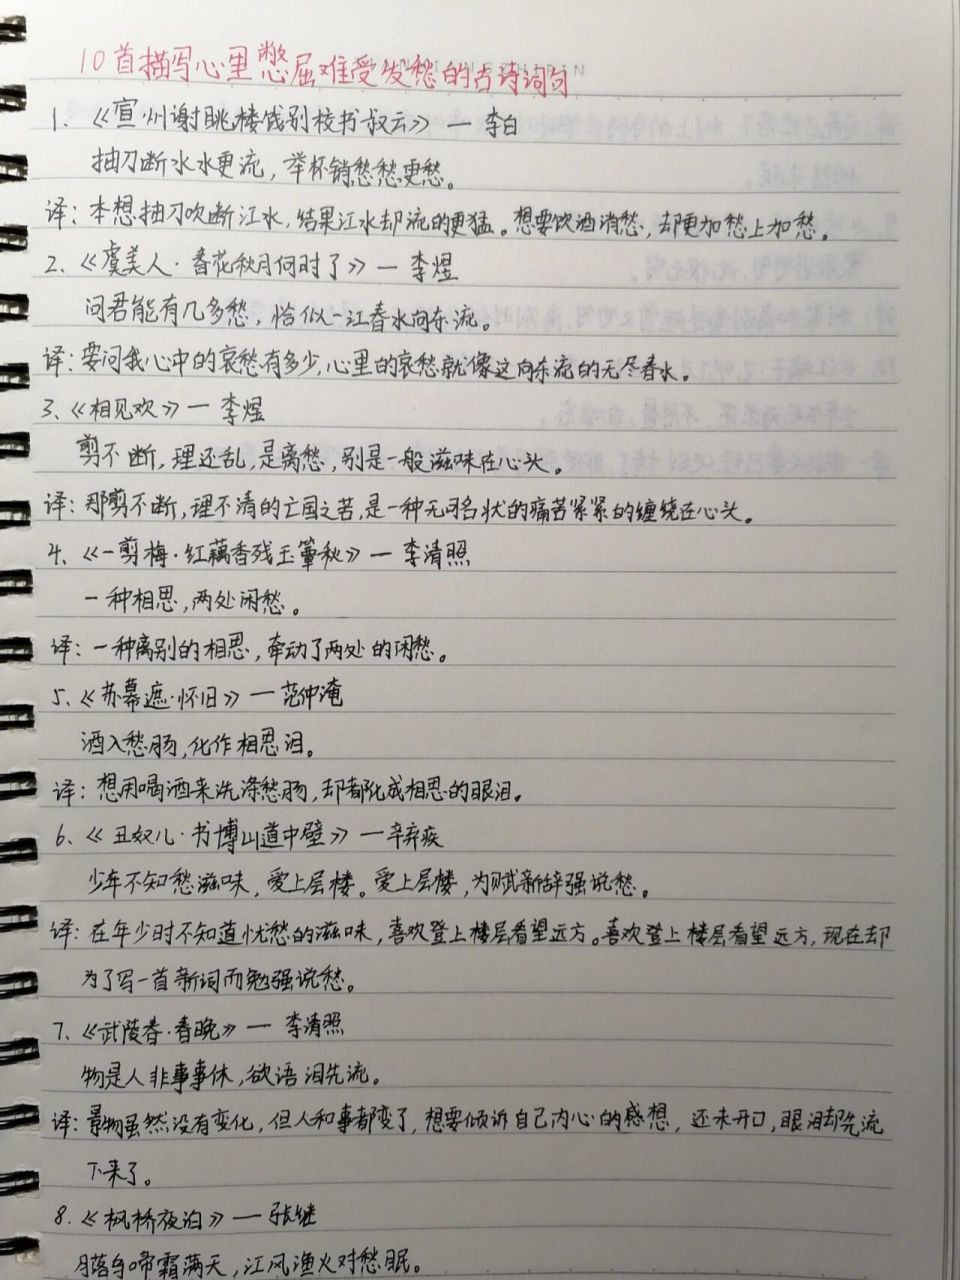 10首描写心里憋屈难受发愁的古诗词句
1、《宣州谢朓楼饯别校书叔云》— 李白
抽刀断水水更流，举杯销愁愁更愁。
译：本想抽刀吹断江水，结果江水却流的更猛。想要饮酒消愁，却更加愁上加愁。
2、《虞美人·春花秋月何时了》— 李煜
问君能有几多愁，恰似一江春水向东流。
译：要问我心中的哀愁有多少，心里的哀愁就像这向东流的无尽春水。
3、《相见欢》— 李煜
剪不断，理还乱，是离愁，别是一般滋味在心头。
译：那剪不断，理不清的亡国之苦，是一种无可名状的痛苦紧紧的缠绕在心头。
4、《一剪梅·红藕香残玉簟秋》— 李清照
一种相思，两处闲愁。
译：一种离别的相思，牵动了两处的闲愁。
5、《苏幕遮·怀旧》— 范仲淹
酒入愁肠，化作相思泪。
译：想用喝酒来洗涤愁肠，却都化成相思的眼泪。
6、《丑奴儿·书博山道中壁》— 辛弃疾
少年不知愁滋味，爱上层楼。爱上层楼，为赋新辞强说愁。
译：在年少时不知道忧愁的滋味，喜欢登上楼层看望远方。喜欢登上楼层看望远方，现在却
为了写一首新词而勉强说愁。
7、《武陵春·春晚》— 李清照
物是人非事事休，欲语泪先流。
译：景物虽然没有变化，但人和事都变了，想要倾诉自己内心的感想，还未开口，眼泪却先流
下来了。
8.《枫桥夜泊》— 张继
月落乌啼霜满天，江风渔火对愁眠。